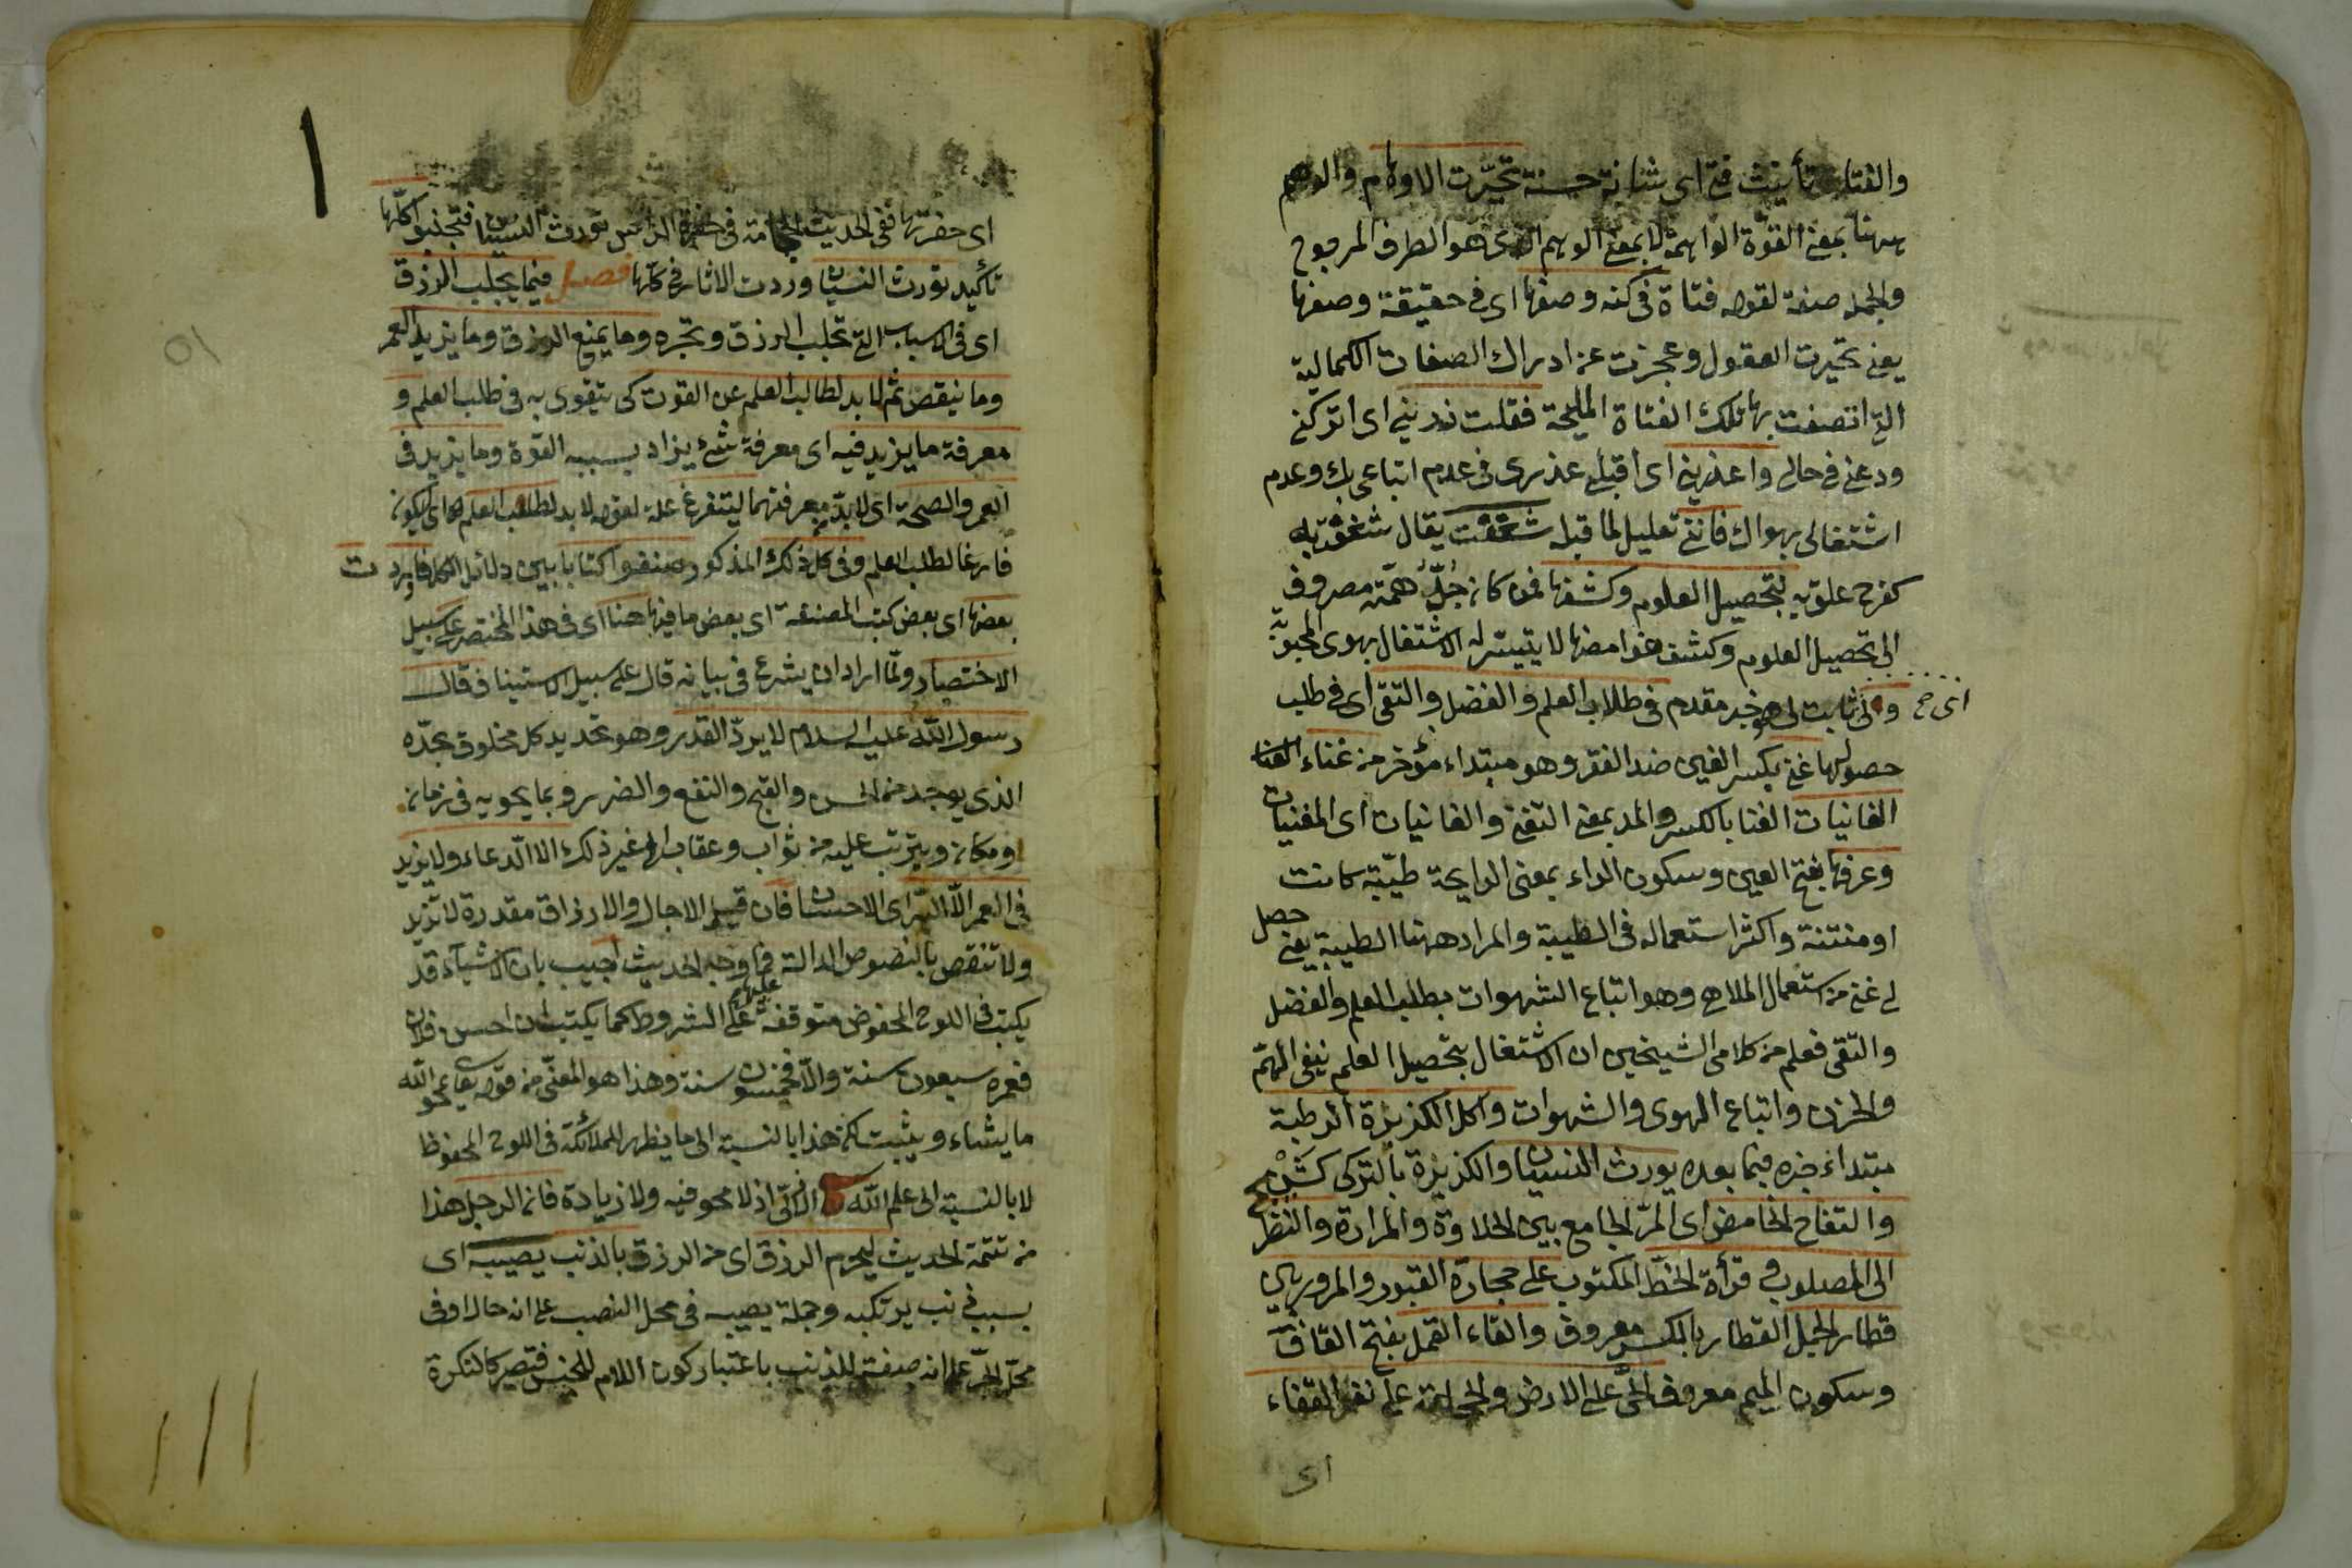 والفتاة تأنيث فتى اى شابة حسنة تحيّرت الاوهام والوهم
ههنا بمعنى القوّة الواهمة لا بمعنى الوهم الذى هو الطرف المرجوح
والجملة صفة لقوله فتاة فى كنه وصفها اى فى حقيقة وصفها
يعنى تحيرت العقول وعجزت عن ادراك الصفات الكمالية
التى اتصفت بها تلك الفتاة المليحة فقلت ذرينى اى اتركنى
ودعنى فى حالى واعذرينى اى اقبلى عذرى فى عدم اتباعى بك وعدم
اشتغالى بهواك فاننى تعليل لما قبله شغفت يقال شغف به
كفرح علق به بتحصيل العلوم وكشفها فمن كان جُلُّ همّته مصروف
الى تحصيل العلوم وكشف غوامضها لا يتيسّر له الاشتغال بهوى المحبوبة
ولى ثابت لى هو خبر مقدم فى طلاب العلم والفضل والتقى اى فى طلب
اى ح
حصولها غنى بكسر الغين ضد الفقر وهو مبتداء مؤخر من غناء
الغانيات الغنا بالكسر والمد بمعنى التغنى والغانيات اى المغنيات
وعرفها بفتح العين وسكون الراء بمعنى الرايحة طيّبة كانت
او منتنة واكثر استعماله فى الطيبة والمراد ههنا الطيبة يعنى حصل
لى غنى من استعمال الملاهى وهو اتباع الشهوات بطلب العلم والفضل
والتقى فعلم من كلامى الشيخين ان الاشتغال بتحصيل العلم ينفى الهمّ
والحزن واتباع الهوى والشهوات واكل الكزبزة الرطبة
مبتداء خبره فيما بعده يورث النسيان والكزبزة بالتركى
والتفاح الحامض اى المرّ الجامع بين الحلاوة والمرارة والنظر
الى المصلوب وقرأة الخطّ المكتوب على حجارة القبور والمرور بين
قطار الجمل القطار بالكسر معروف والقاء القمل بفتح القاف
وسكون الميم معروف الحىّ على الارض والحجامة على نقرة القفاء
اى
اى حفرتها ففى الحديث الحجامة فى حفرة الراس تورث النسيان فتجنبوا كلّها
تأكيد تورث النسيان وردت الاثار فى كلّها فصل فيما يجلب الرزق
اى فى الاسباب التى تجلب الرزق وتجره وما يمنع الرزق وما يزيد العمر
وما ينقص ثم لا بد لطالب العلم من القوت كى يتقوى به فى طلب العلم و
معرفة ما يزيد فيه اى معرفة شئ يزاد بسببه القوة وما يزيد فى
العمر والصحة اى لا بدّ من معرفتهما ليتفرغ علة لقوله لا بد لطلب العلم اى ليكون
فارغا لطلب العلم وفى كل ذلك المذكور صنفوا كتابا يبين دلائل الكل فاوردت
بعضها اى بعض كتب المصنفة اى بعض ما فيها هنا اى فى هذا المختصر على سبيل
الاختصار ولمّا اراد ان يشرع فى بيانه قال على سبيل الاستيناف قال
رسول اللّه عليه السلام لا يردّ القدر وهو تحديد كل مخلوق بحدّه
الذى يوجد من الحسن والقبح والنفع والضرر وبما يحويه فى زمان
ومكان ويترتب عليه من ثواب وعقاب الى غير ذلك الا الدعاء ولا يزيد
فى العمر الّا البرّ اى الاحسان فان قيل الاجال والارزاق مقدرة لا تزيد
ولا تنقص بالنصوص الدالة عليه فما وجه الحديث اجيب بان الاشياء قد
يكتب فى اللوح المحفوض متوقفة على الشروط كما يكتب ان احسن فلان
فعمره سبعون سنة والّا فخمسون سنة وهذا هو المعنّى من قوله تعالى يمحو اللّه
ما يشاء ويثبت لكن هذا بالنسبة الى ما يظهر للملائكة فى اللوح المحفوظ
لا بالنسبة الى علم اللّه الازلى اذ لا محو فيه ولا زيادة فان الرجل هذا
من تتمة الحديث ليحرم الرزق اى من الرزق بالذنب يصيبه اى
بسبب ذنب يرتكبه وجملة يصيبه فى محل النصب على انه حال او فى
محل الجرّ على انه صفة للذنب باعتبار كون اللام للجنس فتصير كالنكرة